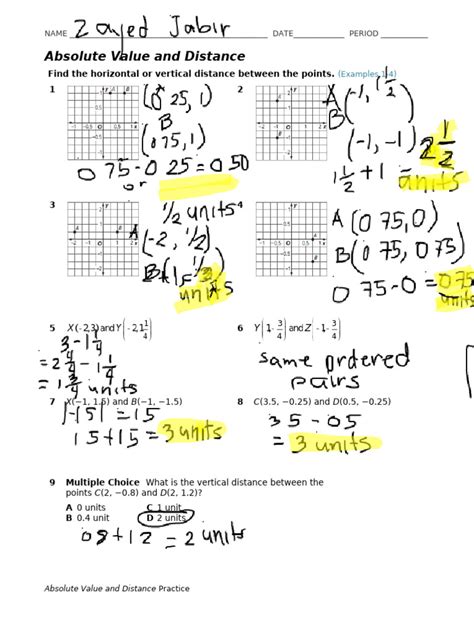 NAME Zayed Jabir DATE PERIOD
Absolute Value and Distance
Find the horizontal or vertical distance between the points. (Examples 1–4)
1
(0 25, 1)
B
(0 75, 1)
0 75 - 0 25 = 0 50
or
1/2 units
2
A (-1, 1 1/2)
B
(-1, -1) 2 1/2
1 1/2 + 1 = units
3
A
(-2, 1/2)
B
units
4
A (0 75, 0)
B (0 75, 0 75)
0 75 - 0 = 0 75
units
5 X(–2,3) and Y(-2,1 1/4)
3 - 1 1/4
= 2 4/4 - 1 1/4
= 1 3/4 units
6 Y(1 - 3/4) and Z(-1 - 3/4)
same ordered
pairs
7 X(–1, 1.5) and B(–1, –1.5)
|-15| = 15
15 + 15 = 3 units
8 C(3.5, –0.25) and D(0.5, –0.25)
3 5 - 05
= 3 units
9 Multiple Choice What is the vertical distance between the
points C(2, –0.8) and D(2, 1.2)?
A 0 units C 1 unit
B 0.4 unit D 2 units
08 + 12 = 2 units
Absolute Value and Distance Practice